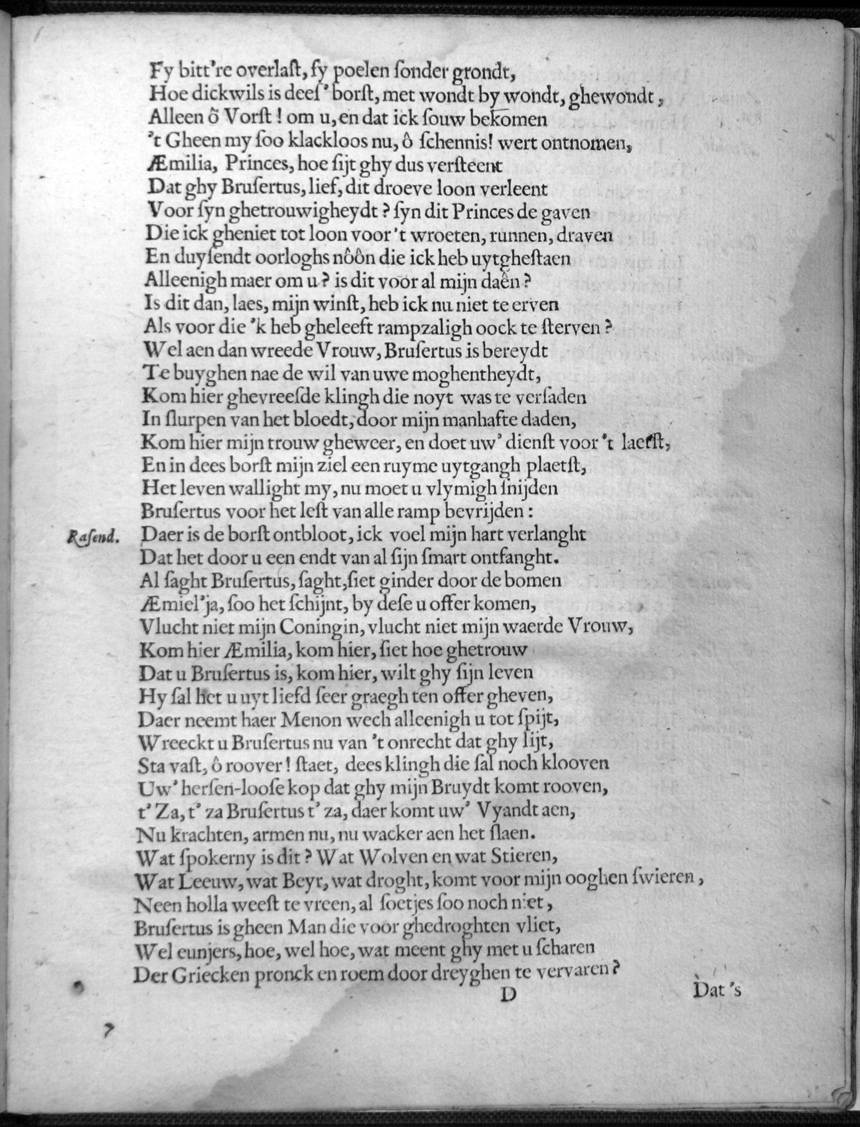 Fy bitt're overlaſt, fy poelen ſonder grondt,
Hoe dickwils is deeſ' borſt, met wondt by wondt, ghewondt,
Alleen ô Vorſt! om u, en dat ick ſouw bekomen
't Gheen my ſoo klackloos nu, ô ſchennis! wert ontnomen,
Æmilia, Princes, hoe ſijt ghy dus verſteent
Dat ghy Bruſertus, lief, dit droeve loon verleent
Voor ſyn ghetrouwigheydt? ſyn dit Princes de gaven
Die ick gheniet tot loon voor 't wroeten, runnen, draven
En duyſendt oorloghs nôôn die ick heb uytgheſtaen
Alleenigh maer om u? is dit voor al mijn daên?
Is dit dan, laes, mijn winſt, heb ick nu niet te erven
Als voor die 'k heb gheleeft rampzaligh oock te ſterven?
Wel aen dan wreede Vrouw, Bruſertus is bereydt
Te buyghen nae de wil van uwe moghentheydt,
Kom hier ghevreeſde klingh die noyt was te verſaden
In ſlurpen van het bloedt, door mijn manhafte daden,
Kom hier mijn trouw gheweer, en doet uw' dienſt voor 't laetſt,
En in dees borſt mijn ziel een ruyme uytgangh plaetſt,
Het leven wallight my, nu moet u vlymigh ſnijden
Bruſertus voor het leſt van alle ramp bevrijden:
Raſend. Daer is de borſt ontbloot, ick voel mijn hart verlanght
Dat het door u een endt van al ſijn ſmart ontfanght.
Al ſaght Bruſertus, ſaght, ſiet ginder door de bomen
Æmiel'ja, ſoo het ſchijnt, by deſe u offer komen,
Vlucht niet mijn Coningin, vlucht niet mijn waerde Vrouw,
Kom hier Æmilia, kom hier, ſiet hoe ghetrouw
Dat u Bruſertus is, kom hier, wilt ghy ſijn leven
Hy ſal het u uyt liefd ſeer graegh ten offer gheven,
Daer neemt haer Menon wech alleenigh u tot ſpijt,
Wreeckt u Bruſertus nu van 't onrecht dat ghy lijt,
Sta vaſt, ô roover! ſtaet, dees klingh die ſal noch klooven
Uw' herſen-looſe kop dat ghy mijn Bruydt komt rooven,
t' Za, t' za Bruſertus t' za, daer komt uw' Vyandt aen,
Nu krachten, armen nu, nu wacker aen het ſlaen.
Wat ſpokerny is dit? Wat Wolven en wat Stieren,
Wat Leeuw, wat Beyr, wat droght, komt voor mijn ooghen ſwieren,
Neen holla weeſt te vreen, al ſoetjes ſoo noch niet,
Bruſertus is gheen Man die voor ghedroghten vliet,
Wel eunjers, hoe, wel hoe, wat meent ghy met u ſcharen
Der Griecken pronck en roem door dreyghen te vervaren?
D Dat's